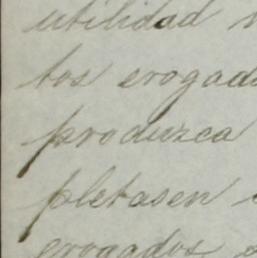 utilidad
tos erogad
produzca
pletasen
erogados